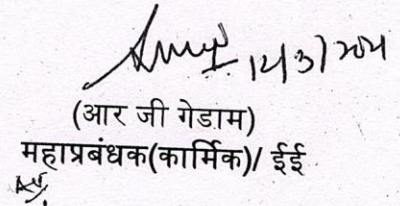 12/3/2021
(आर जी गेडाम)
महाप्रबंधक(कार्मिक)/ ईई